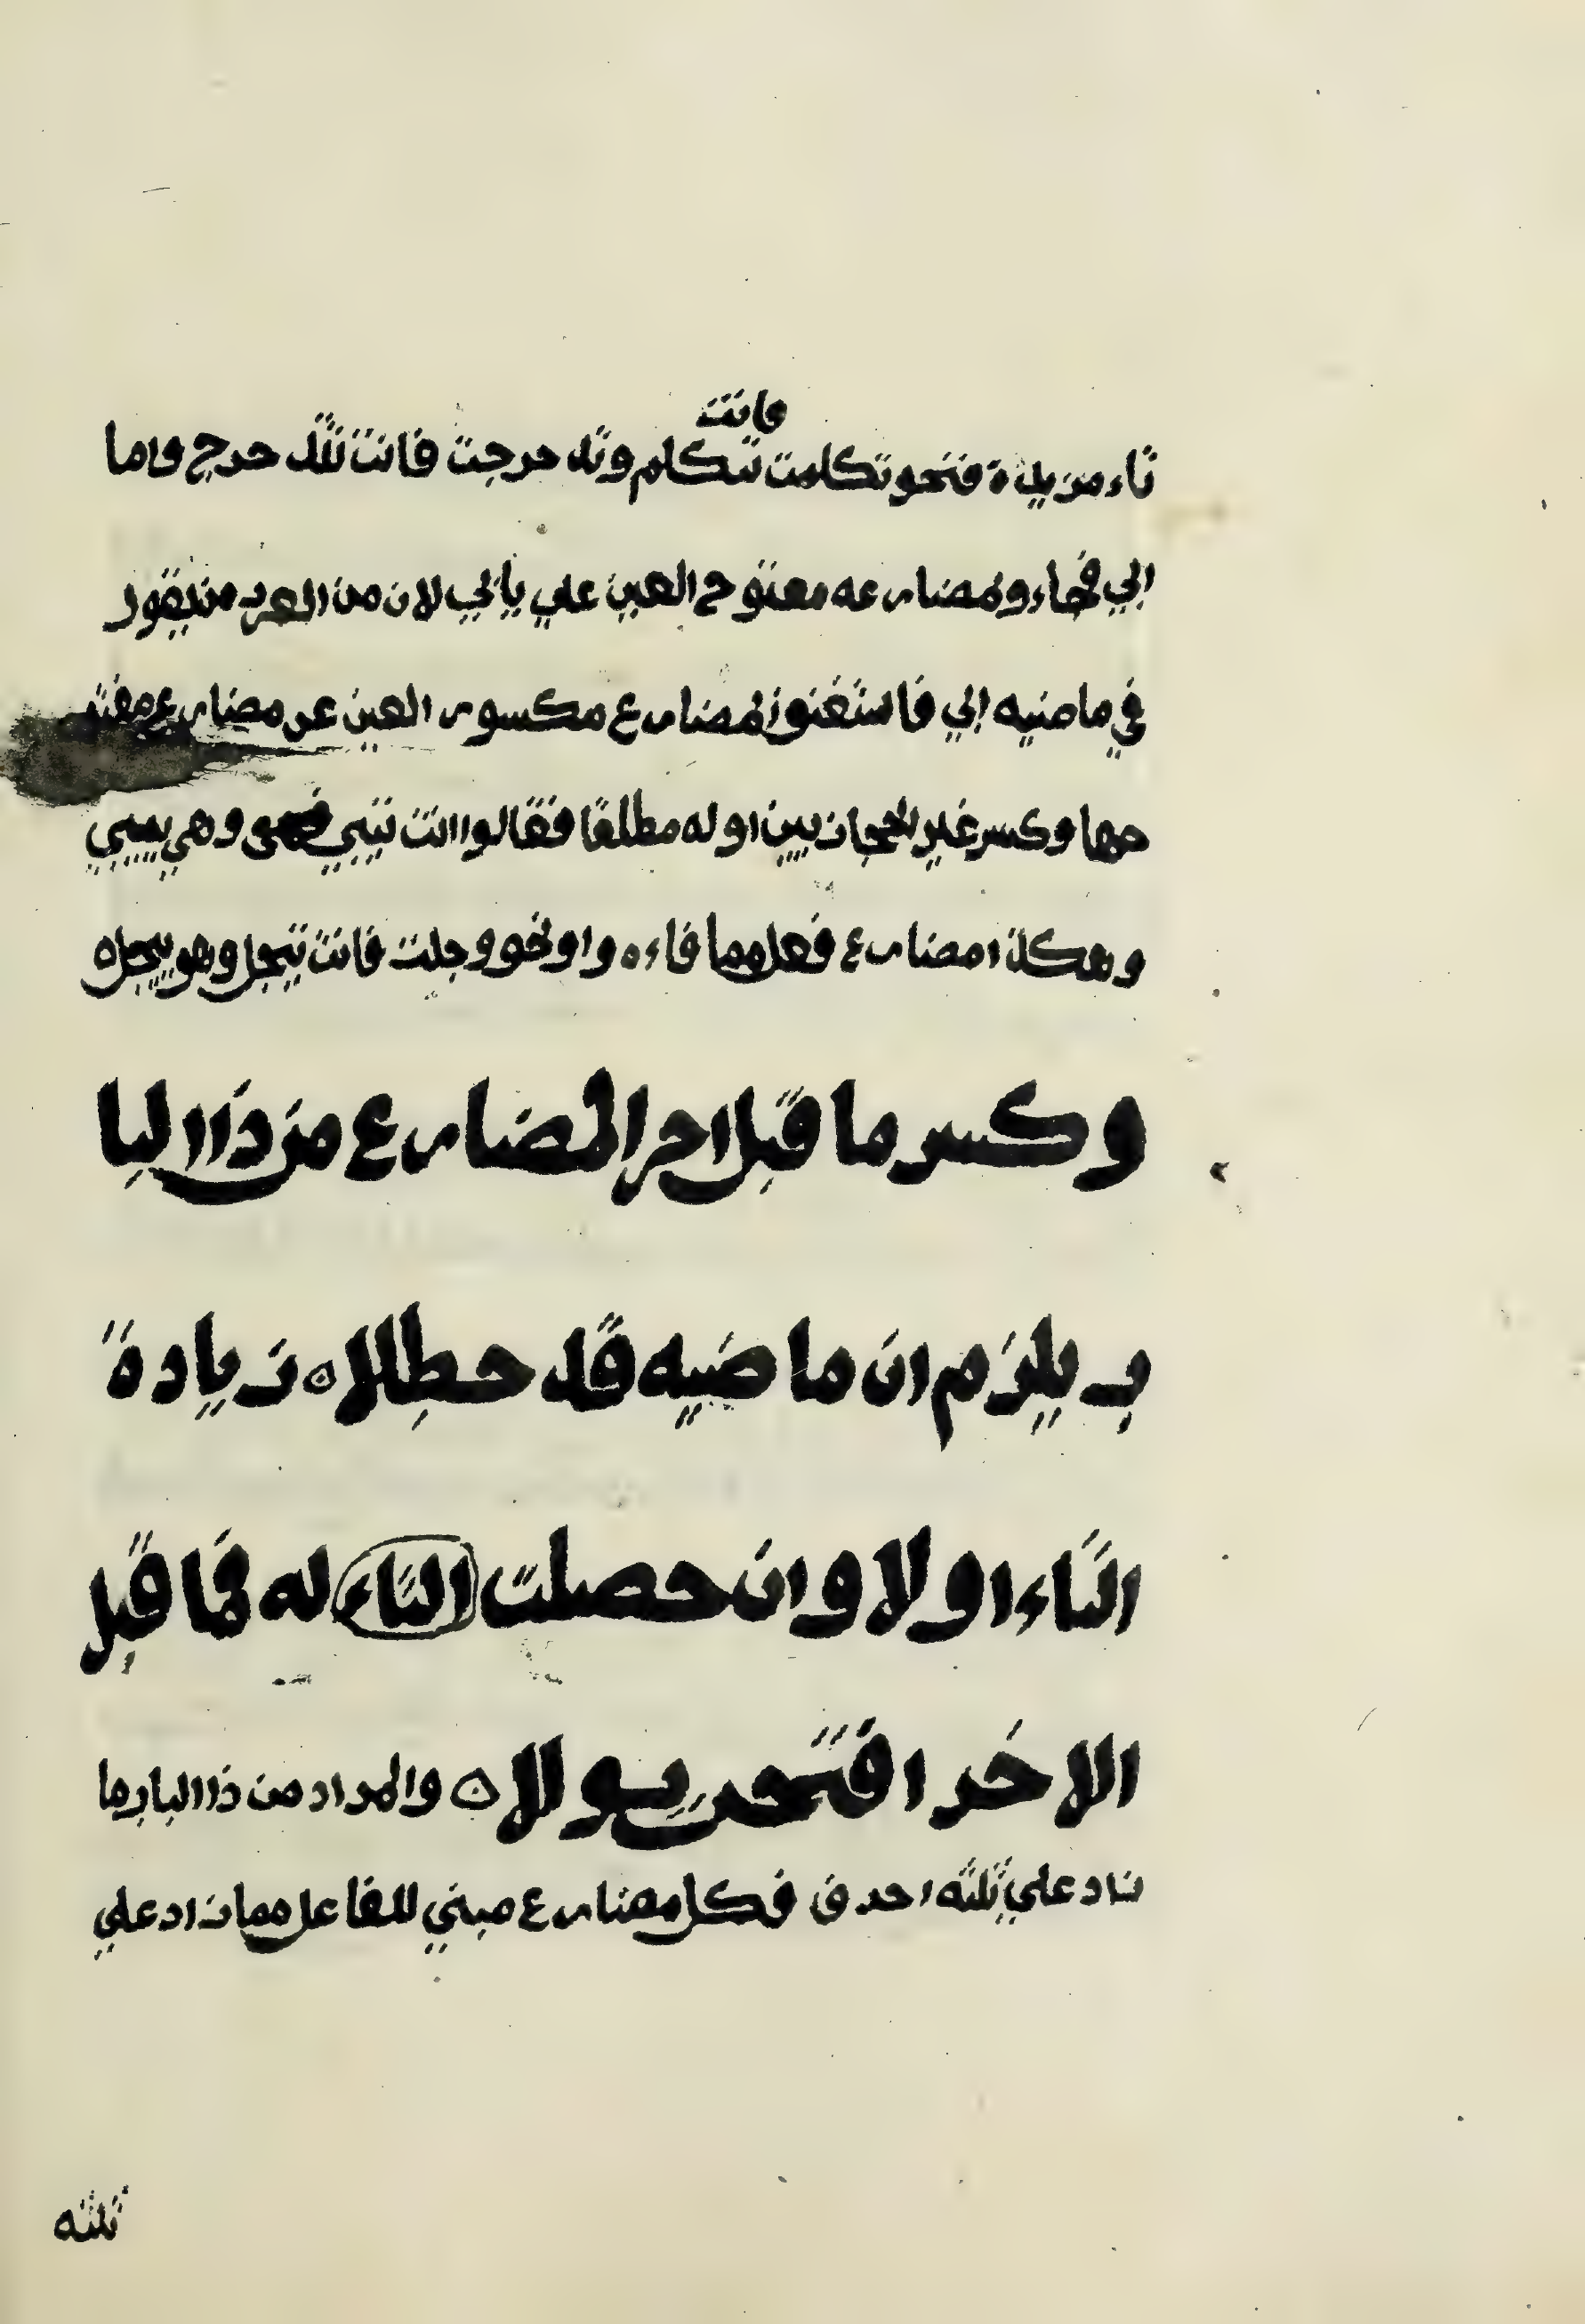 فانت
تاء مزيدة فنحو تكلمت تتكلم وتد حرجت فانت تتد حرج واما
ابي فجاء ومضارعه مفتوح العين علي يابي لان من العرب من يقول
في ماضيه ابي فاستغنوا لمضارع مكسور العين عن مضارع مفتو
حها وكسر غير الحجازيين اوله مطلقا فقالوا انت تيبي وهي ييبي
وهكذا مضارع فعل مما فاءه واو نحو وجلت فانت تيجل وهو ييجل ه
وكسر ما قبل اخر المضارع من ذا البا
ب يلزم ان ماضيه قد حظلا ه زيادة
التاء اولا وان حصلت التاء له فما قبل
الاخر افتحن بولا ه والمراد من ذا الباب ما
زاد علي ثلثه احرف فكل مضارع مبني للفاعل مما زاد علي
ثلثه